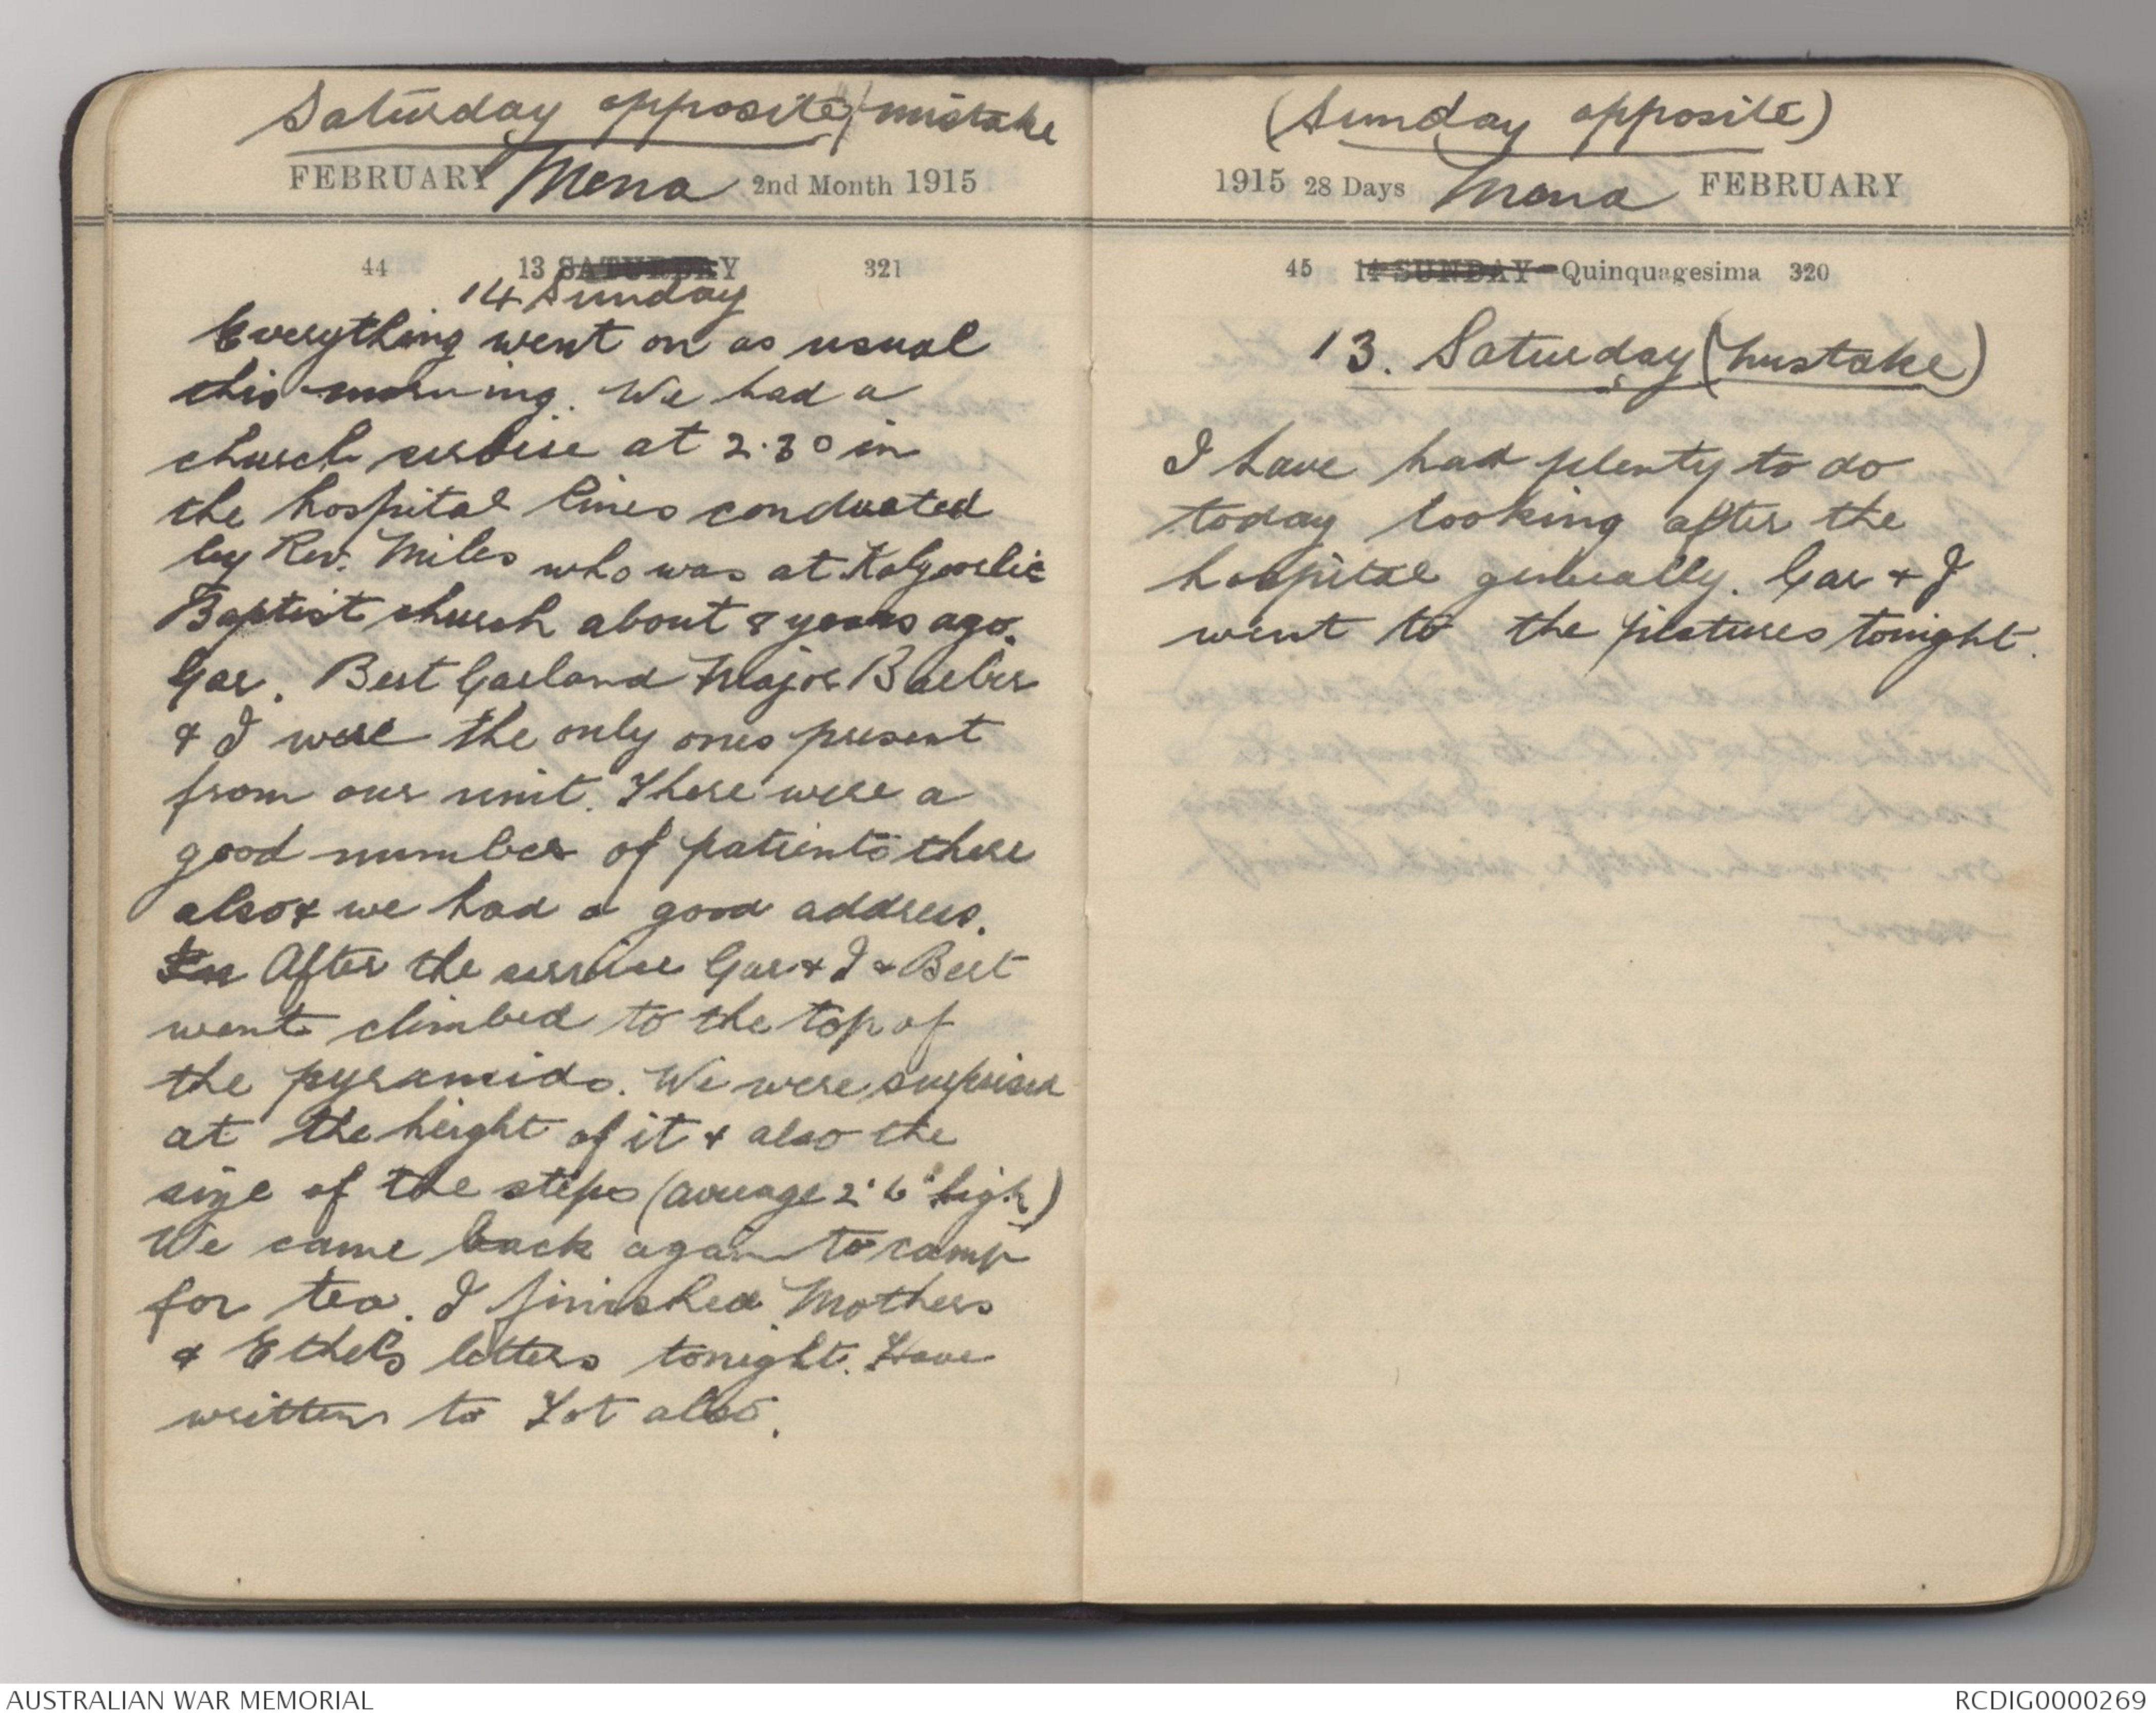 Saturday opposite / mistake
FEBRUARY Mena 2nd Month 1915
44 13 SATURDAY 321
14 Sunday
Everything went on as usual
this morning. We had a
church service at 2.30 in
the hospital lines conducted
by Rev. Miles who was at Kalgoorlie
Baptist church about 8 years ago.
Gar. Bert Garland Major Barber
& I were the only ones present
from our unit. There were a
good number of patients there
also & we had a good address.
After the service Gar & I & Bert
went climbed to the top of
the pyramids. We were surprised
at the height of it & also the
size of the steps (average 2' 6" high)
We came back again to camp
for tea. I finished Mothers
& Ethel's letters tonight. Have
written to Lot also.
(Sunday opposite)
1915 28 Days Mena FEBRUARY
45 14 SUNDAY Quinquagesima 320
13. Saturday (mistake)
I have had plenty to do
today looking after the
hospital generally. Gar & I
went to the pictures tonight.
AUSTRALIAN WAR MEMORIAL
RCDIG0000269